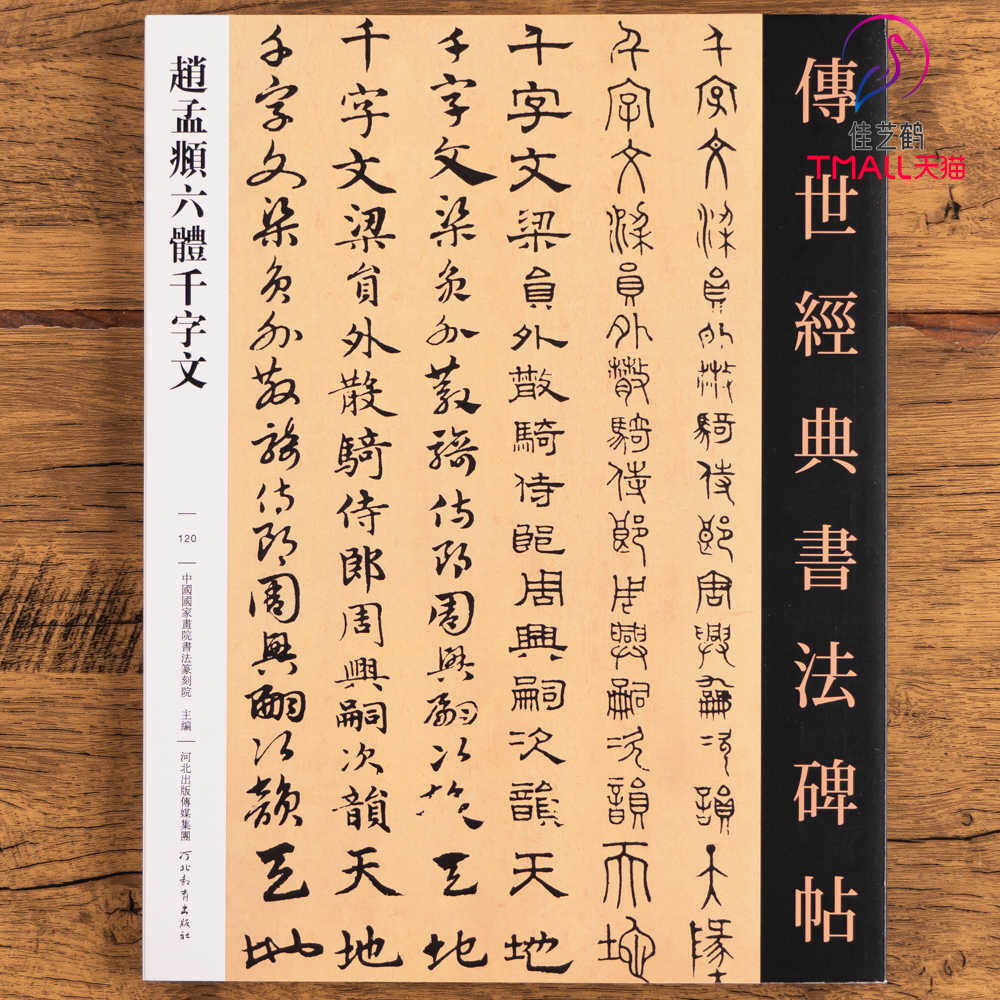 佳艺鹤
TMALL天猫
傳世經典書法碑帖
千字文梁員外散騎侍郎周興嗣次韻天地
千字文梁員外散騎侍郎周興嗣次韻天地
千字文梁員外散騎侍郎周興嗣次韻天地
千字文梁員外散騎侍郎周興嗣次韻天地
千字文梁員外散騎侍郎周興嗣次韻天地
千字文梁員外散騎侍郎周興嗣次韻天地
趙孟頫六體千字文
120
中國國家畫院書法篆刻院 主編
河北出版傳媒集團
河北教育出版社